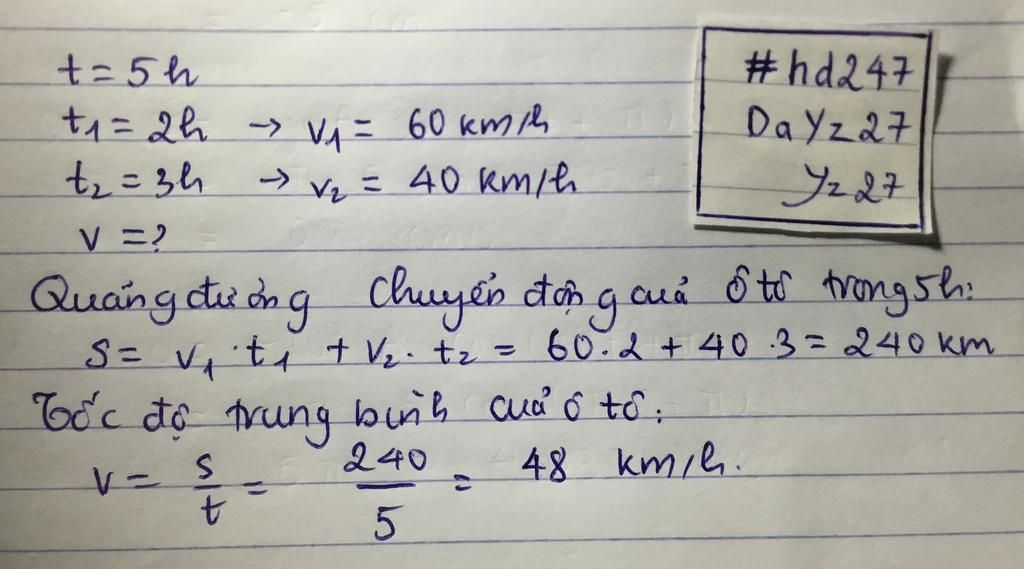 t = 5h
t1 = 2h → v1 = 60 km/h
t2 = 3h → v2 = 40 km/h
v = ?
#hd247
DaYz27
Yz27
Quãng đường chuyển động cuả ô tô trong 5h:
S = v1 · t1 + v2 · t2 = 60 · 2 + 40 · 3 = 240 km
Tốc độ trung bình cuả ô tô:
v = s/t = 240/5 = 48 km/h.